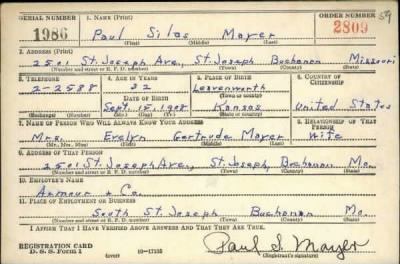 SERIAL NUMBER 1. NAME (Print) ORDER NUMBER
1986 Paul Silas Mayer 2809 59
(First) (Middle) (Last)
2. ADDRESS (Print)
2501 St. Joseph Ave, St. Joseph Buchanan Missouri
(Number and street or R. F. D. number) (Town) (County) (State)
3. TELEPHONE 4. AGE IN YEARS 5. PLACE OF BIRTH 6. COUNTRY OF CITIZENSHIP
2-2588 32 Leavenworth
DATE OF BIRTH (Town or county)
Sept. 15, 1908 Kansas United States
(Exchange) (Number) (Mo.) (Day) (Yr.) (State or country)
7. NAME OF PERSON WHO WILL ALWAYS KNOW YOUR ADDRESS 8. RELATIONSHIP OF THAT PERSON
Mrs. Evelyn Gertrude Mayer Wife
(Mr., Mrs., Miss) (First) (Middle) (Last)
9. ADDRESS OF THAT PERSON
2501 St. Joseph Ave., St. Joseph, Buchanan Mo.
(Number and street or R. F. D. number) (Town) (County) (State)
10. EMPLOYER'S NAME
Armour & Co.
11. PLACE OF EMPLOYMENT OR BUSINESS
South St. Joseph Buchanan Mo.
(Number and street or R. F. D. number) (Town) (County) (State)
I AFFIRM THAT I HAVE VERIFIED ABOVE ANSWERS AND THAT THEY ARE TRUE.
REGISTRATION CARD
D. S. S. Form 1 (over) 16—17135 Paul S. Mayer
(Registrant's signature)